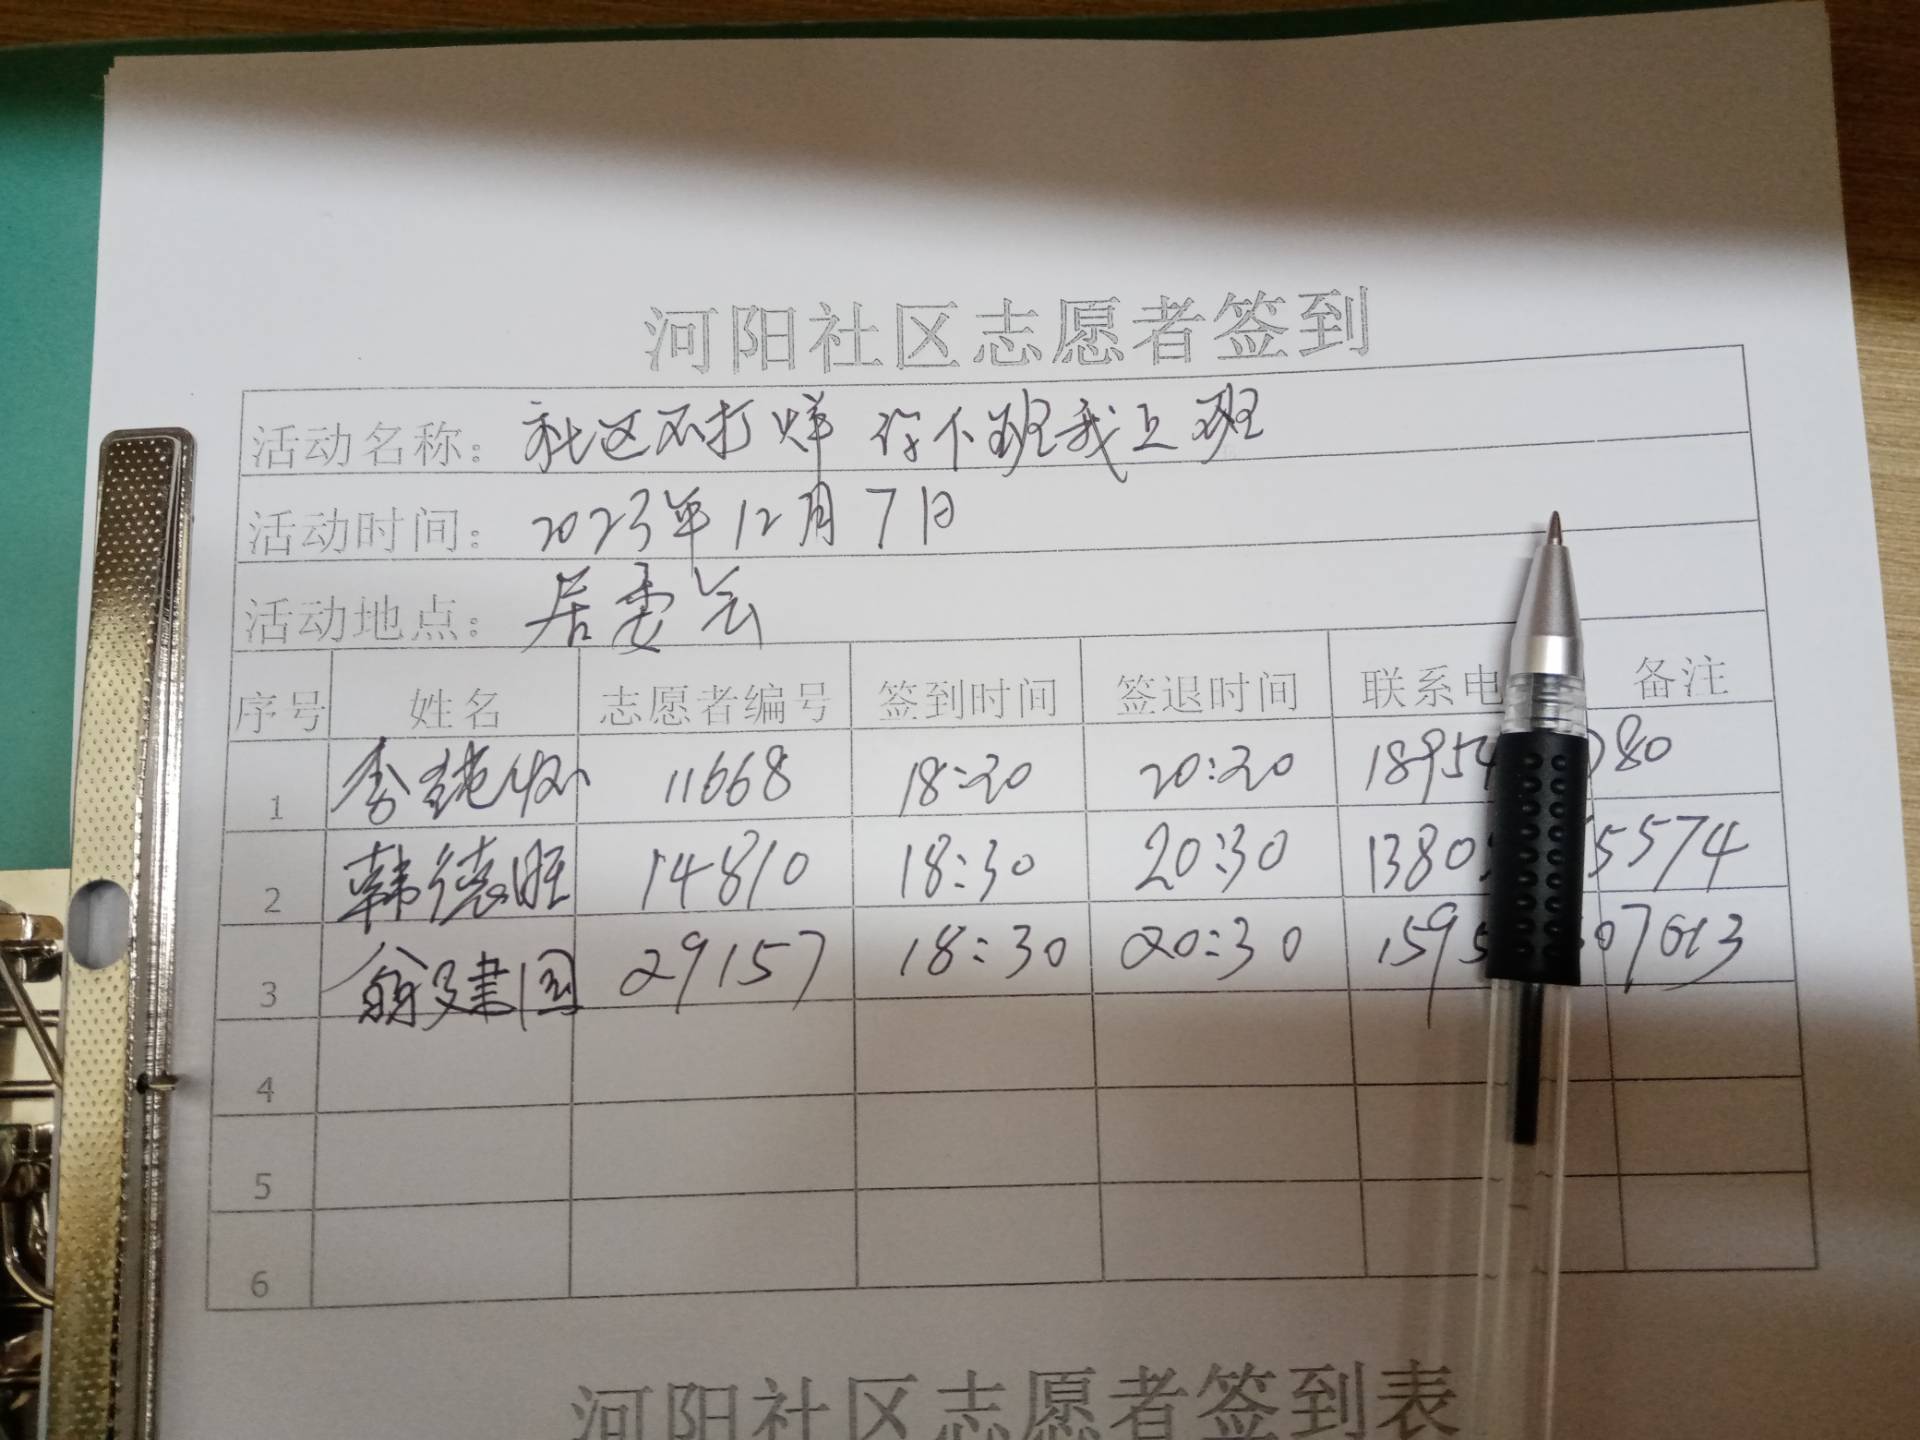 河阳社区志愿者签到
活动名称： 社区不打烊 你下班我上班
活动时间： 2023年12月7日
活动地点： 居委会
序号 姓名 志愿者编号 签到时间 签退时间 联系电 备注
1 李 11668 18:20 20:20 1895 80
2 韩德旺 14810 18:30 20:30 1380 5574
3 翁建国 29157 18:30 20:30 1595 07613
4
5
6
河阳社区志愿者签到表